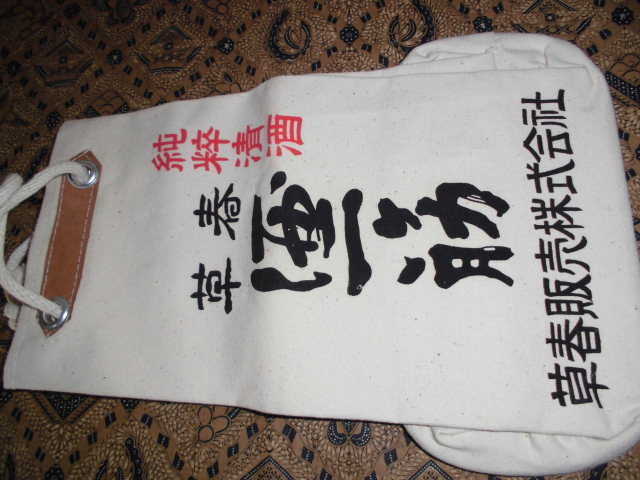 純粹清酒
草春
酒一筋
草春販売株式会社